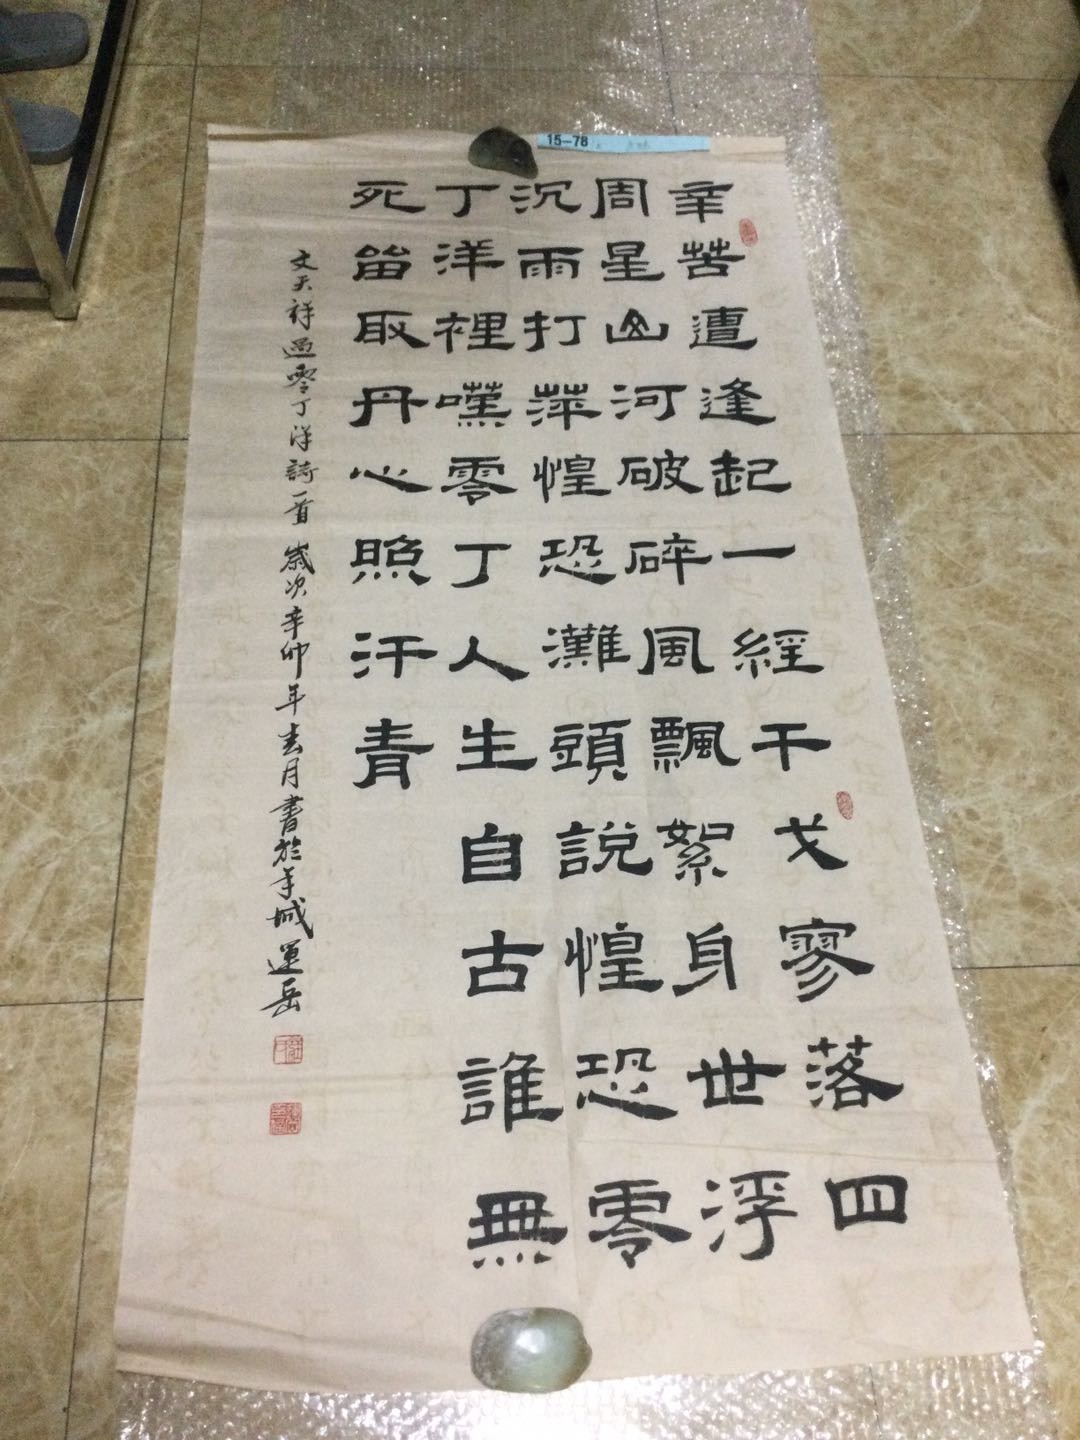 15-78
辛苦遭逢起一經干戈寥落四
周星山河破碎風飄絮身世浮
沉雨打萍惶恐灘頭說惶恐零
丁洋裡嘆零丁人生自古誰無
死留取丹心照汗青
文天祥過零丁洋詩一首 歲次辛卯年春月書於羊城 運岳